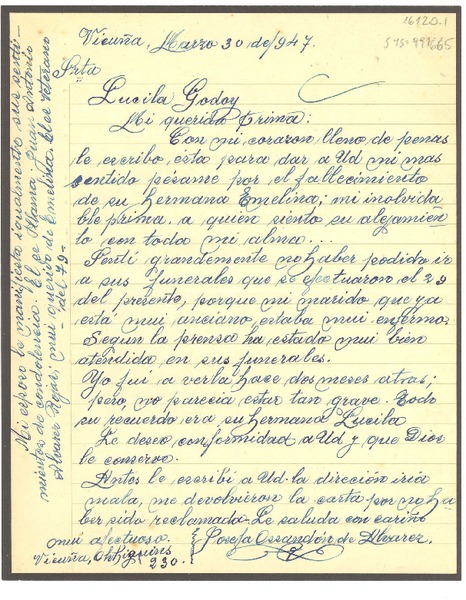 16120.1
Vicuña, Marzo 30 de/947.
Srta
Lucila Godoy
Mi querida Prima:
Con mi corazon lleno de penas
le escribo esta para dar a Ud mi mas
sentido pésame por el fallecimiento
de su hermana Emelina; mi inolvida
ble prima. a quien siento su alejamien
to con toda mi alma...
Senti grandemente no haber podido ir
a sus funerales que se efectuaron el 29
del presente, porque mi marido que ya
está mui anciano, estaba mui enfermo.
Segun la prensa ha estado mui bien
atendida en sus funerales.
Yo fui a verla hace dos meses atras;
pero, no parecia estar tan grave. Todo
su recuerdo era su hermana Lucila
Le deseo conformidad a Ud y que Dios
le conserve.
Antes le escribi a Ud la direción iria
mala, me devolvieron la carta por no ha
ber sido reclamada - Le saluda con cariño
mui afectuoso. Josefa Ossandón de Alvarez.
Vicuña, OhHiguins
230.
Mi esposo le manifiesta igualmente sus senti-
mientos de condolencia. El se llama; Juan Antonio
Alvarez Rojas; mui querido de Emelina. El es Veterano
- del 79 -